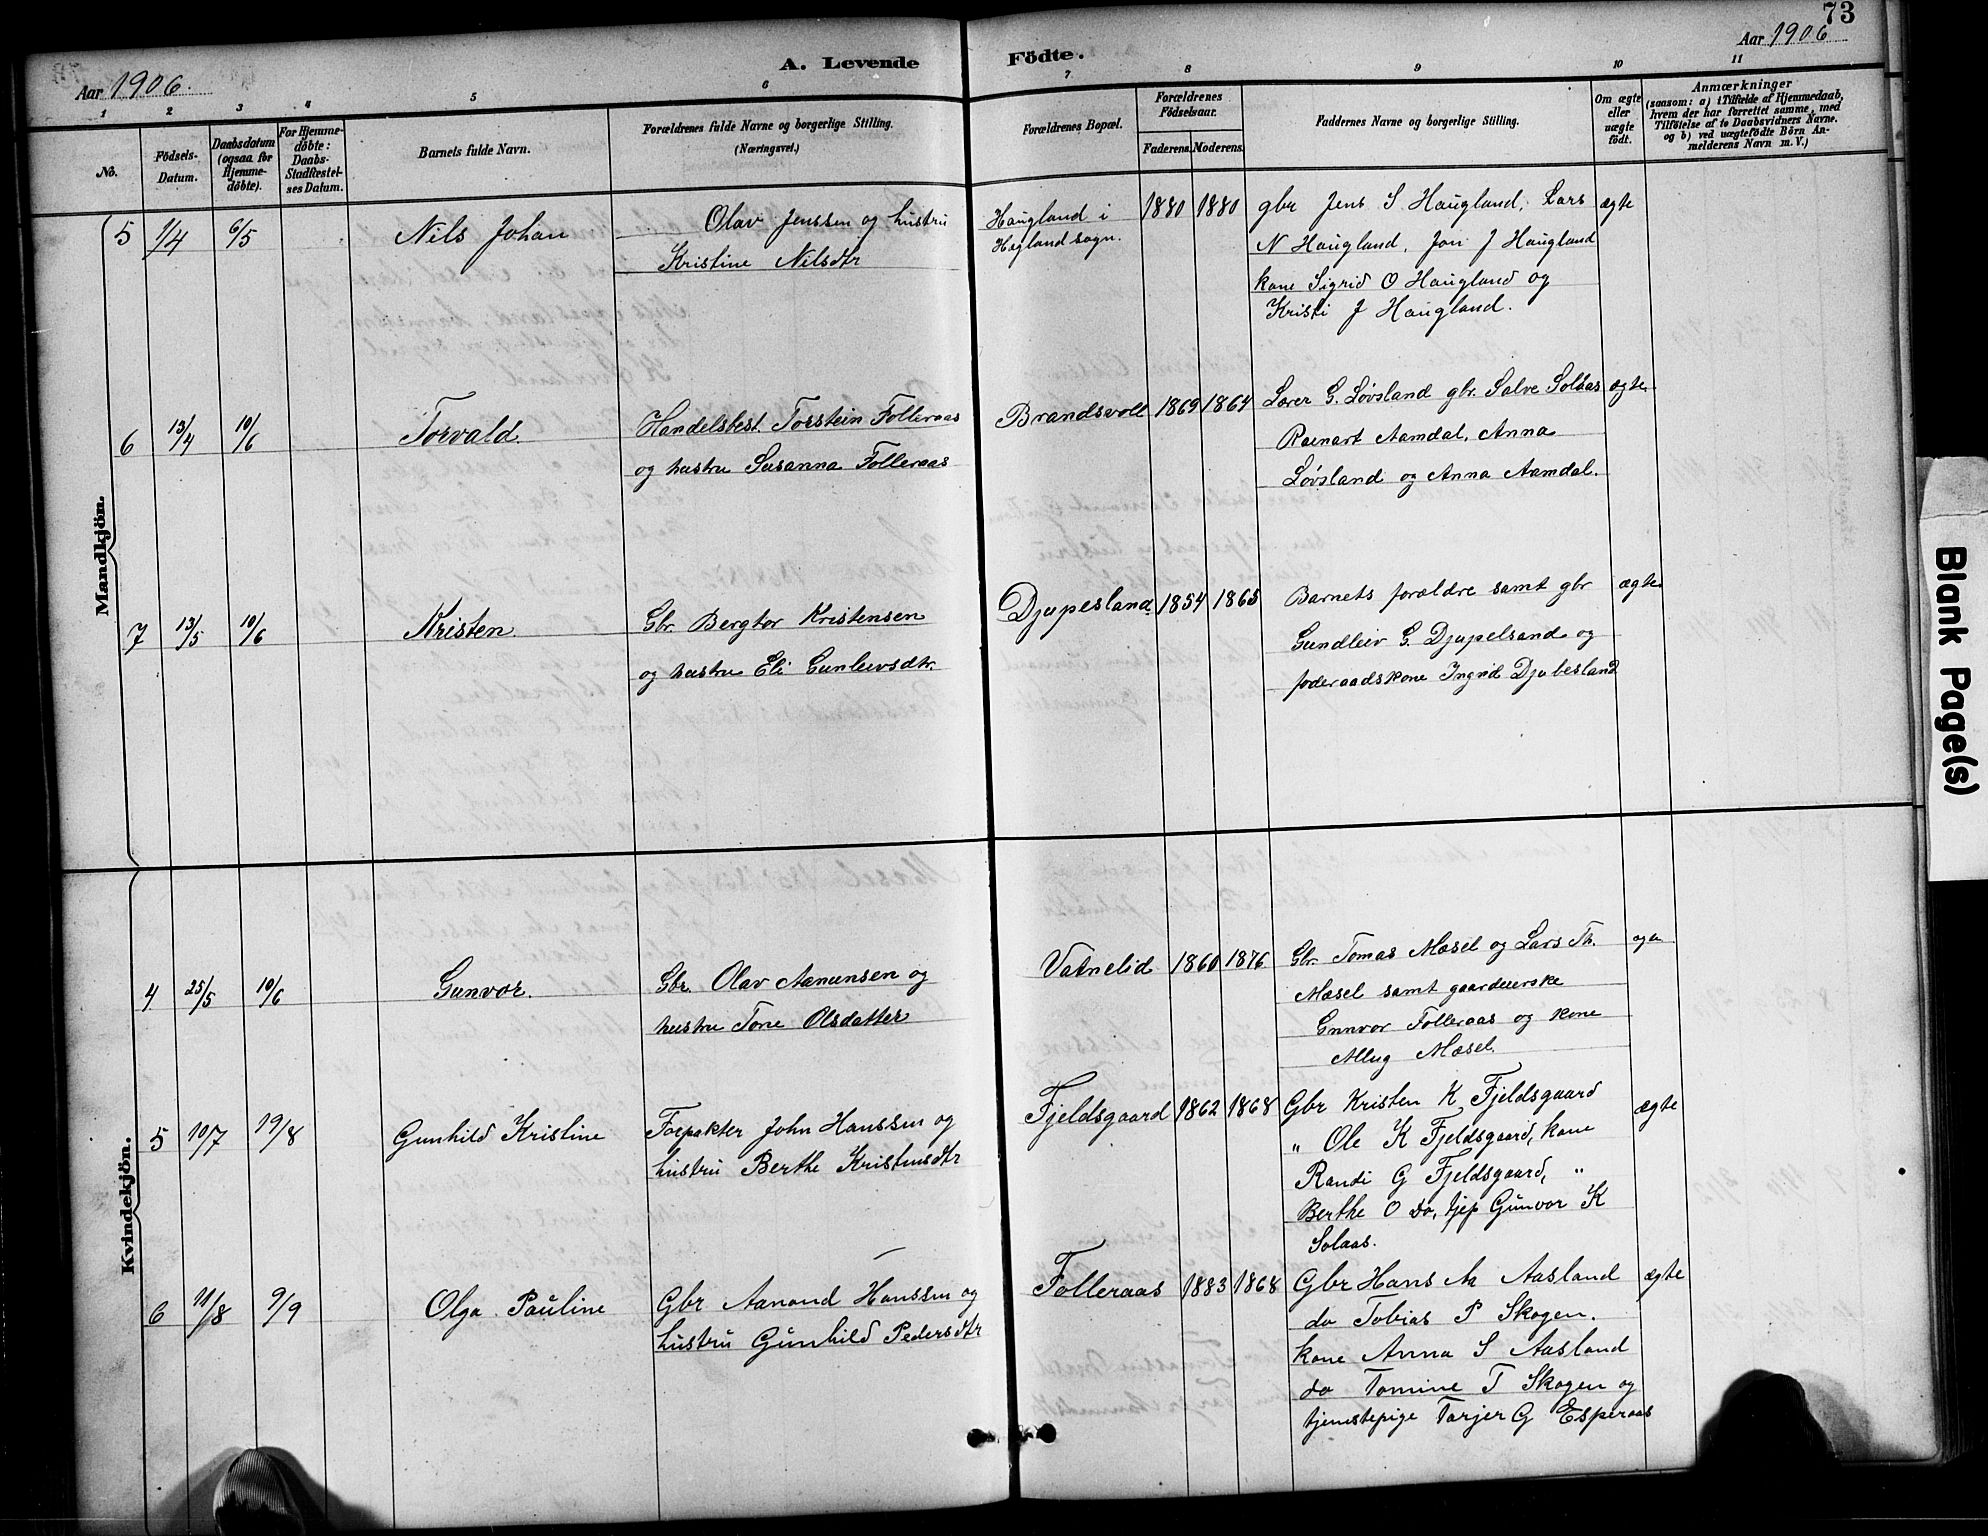 73
Aar 1906.
A. Levende Födte.
Aar 1906
1 2 3 4 5 6 7 8 9 10 11
No.
Födsels-
Datum.
Daabsdatum
(ogsaa for
Hjemme-
döbte).
For Hjemme-
döbte:
Daabs-
Stadfæstel-
ses Datum.
Barnets fulde Navn.
Forældrenes fulde Navne og borgerlige Stilling.
(Næringsvei.)
Forældrenes Bopæl.
Forældrenes
Födselsaar.
Faderens. Moderens.
Faddernes Navne og borgerlige Stilling.
Om ægte
eller
uægte
födt.
Anmærkninger
(saasom: a) i Tilfælde af Hjemmedaab,
hvem der har forrettet samme, med
Tilföielse af to Daabsvidners Navne.
og b) ved uægtefödte Börn An-
melderens Navn m. V.)
Mandkjön.
5 1/4 6/5 Nils Johan
Olav Jenssen og hustru
Kristine Nilsdtr
Haugland i
Hægland sogn.
1880 1880
gbr Jens S Haugland, Lars
N Haugland, Jon J Haugland
kone Sigrid O Haugland og
Kristi J Haugland.
ægte
6 13/4 10/6 Torvald.
Handelsbest. Torstein Folleraas
og hustru Susanna Folleraas
Brandsvoll 1869 1864
Lærer G. Løvsland gbr. Salve Solaas
Reinart Aamdal, Anna
Løvsland og Anna Aamdal.
ægte
7 13/5 10/6 Kristen
Gbr. Bergtor Kristensen
og hustru Eli Gunleivsdtr.
Djupesland 1854 1865
Barnets forældre samt gbr
Gundleiv G. Djupelsand og
føderaadskone Ingrid Djubesland
ægte
Kvindekjön.
4 25/5 10/6 Gunvor.
Gbr. Olav Aanunsen og
hustru Tone Olsdatter
Vatnelid 1860 1876
Gbr. Tomas Mæsel og Lars Th.
Mæsel samt gaardeierske
Gunvor Folleraas og kone
Allug Mæsel.
5 10/7 19/8 Gunhild Kristine
Forpakter John Hanssen og
hustru Berthe Kristensdtr
Fjeldsgaard 1862 1868
Gbr Kristen K Fjeldsgaard
" Ole K Fjeldsgaard, kone
Randi G Fjeldsgaard, "
Berthe O do, tjep Gunvor K
Solaas.
ægte
6 11/8 9/9 Olga Pauline
Gbr Aanond Hanssen og
hustru Gunhild Pedersdtr
Folleraas 1883 1868
Gbr Hans Aa Aasland
do Tobias P Skogen.
kone Anna S Aasland
do Tomine T Skogen og
tjenestepige Tarjer G Esperaas
ægte
Blank Page(s)